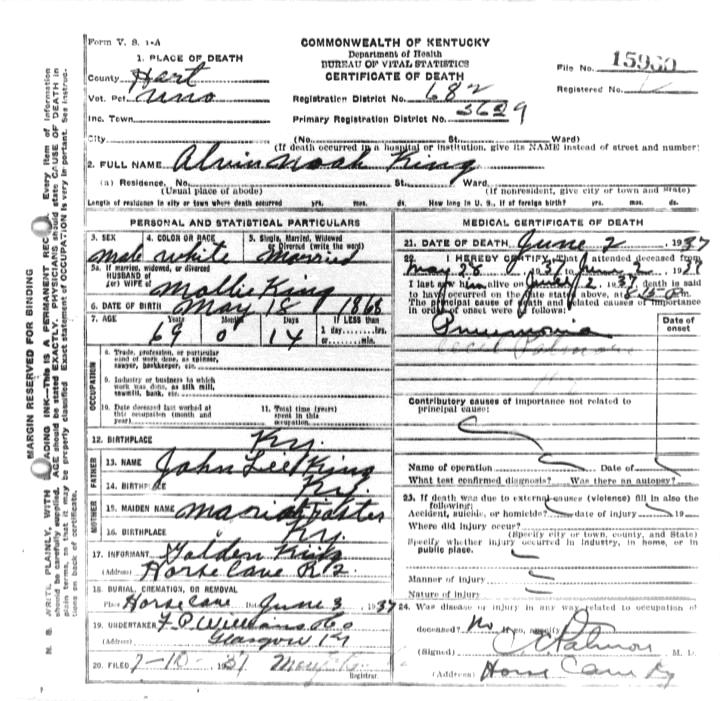 Form V. S. 1-A
COMMONWEALTH OF KENTUCKY
Department of Health
BUREAU OF VITAL STATISTICS
CERTIFICATE OF DEATH
File No. 15960
Registered No.
1. PLACE OF DEATH
County Hart
Vot. Pct. Uno
Inc. Town
Registration District No. 682
Primary Registration District No. 3629
City (No. St. Ward)
(If death occurred in a hospital or institution, give its NAME instead of street and number)
2. FULL NAME Alvin Noah King
(a) Residence. No. St. Ward
(Usual place of abode) (If nonresident, give city or town and State)
Length of residence in city or town where death occurred yrs. mos. ds. How long in U. S., if of foreign birth? yrs. mos. ds.
PERSONAL AND STATISTICAL PARTICULARS
3. SEX 4. COLOR OR RACE 5. Single, Married, Widowed
or Divorced (write the word)
male white Married
5a. If married, widowed, or divorced
HUSBAND of
(or) WIFE of Mollie King
6. DATE OF BIRTH May 18 1868
7. AGE Years Months Days If LESS than
69 0 14 1 day hrs.
or min.
OCCUPATION
8. Trade, profession, or particular
kind of work done, as spinner,
sawyer, bookkeeper, etc.
9. Industry or business in which
work was done, as silk mill,
sawmill, bank, etc.
10. Date deceased last worked at
this occupation (month and
year)
11. Total time (years)
spent in this
occupation
12. BIRTHPLACE Ky.
FATHER
13. NAME John Lee King
14. BIRTHPLACE Ky.
MOTHER
15. MAIDEN NAME Maria Foster
16. BIRTHPLACE Ky.
17. INFORMANT Golden King
(Address) Horse Cave R 2
18. BURIAL, CREMATION, OR REMOVAL
Place Horse Cave Date June 3, 1937
19. UNDERTAKER F. P. Williams & Co
(Address) Glasgow Ky
20. FILED 7-10-1937
Registrar.
MEDICAL CERTIFICATE OF DEATH
21. DATE OF DEATH June 2, 1937
22. I HEREBY CERTIFY, That I attended deceased from
May 28, 1937 to June 2, 1937
I last saw him alive on June 2, 1937 death is said
to have occurred on the date stated above, at
The principal cause of death and related causes of importance
in order of onset were as follows:
Date of
onset
Pneumonia
Contributory causes of importance not related to
principal cause:
Name of operation Date of
What test confirmed diagnosis? Was there an autopsy?
23. If death was due to external causes (violence) fill in also the
following:
Accident, suicide, or homicide? date of injury 19
Where did injury occur?
(Specify city or town, county, and State)
Specify whether injury occurred in industry, in home, or in
public place.
Manner of injury
Nature of injury
24. Was disease or injury in any way related to occupation of
deceased? No If so, specify
(Signed) M. D.
(Address) Horse Cave Ky
MARGIN RESERVED FOR BINDING